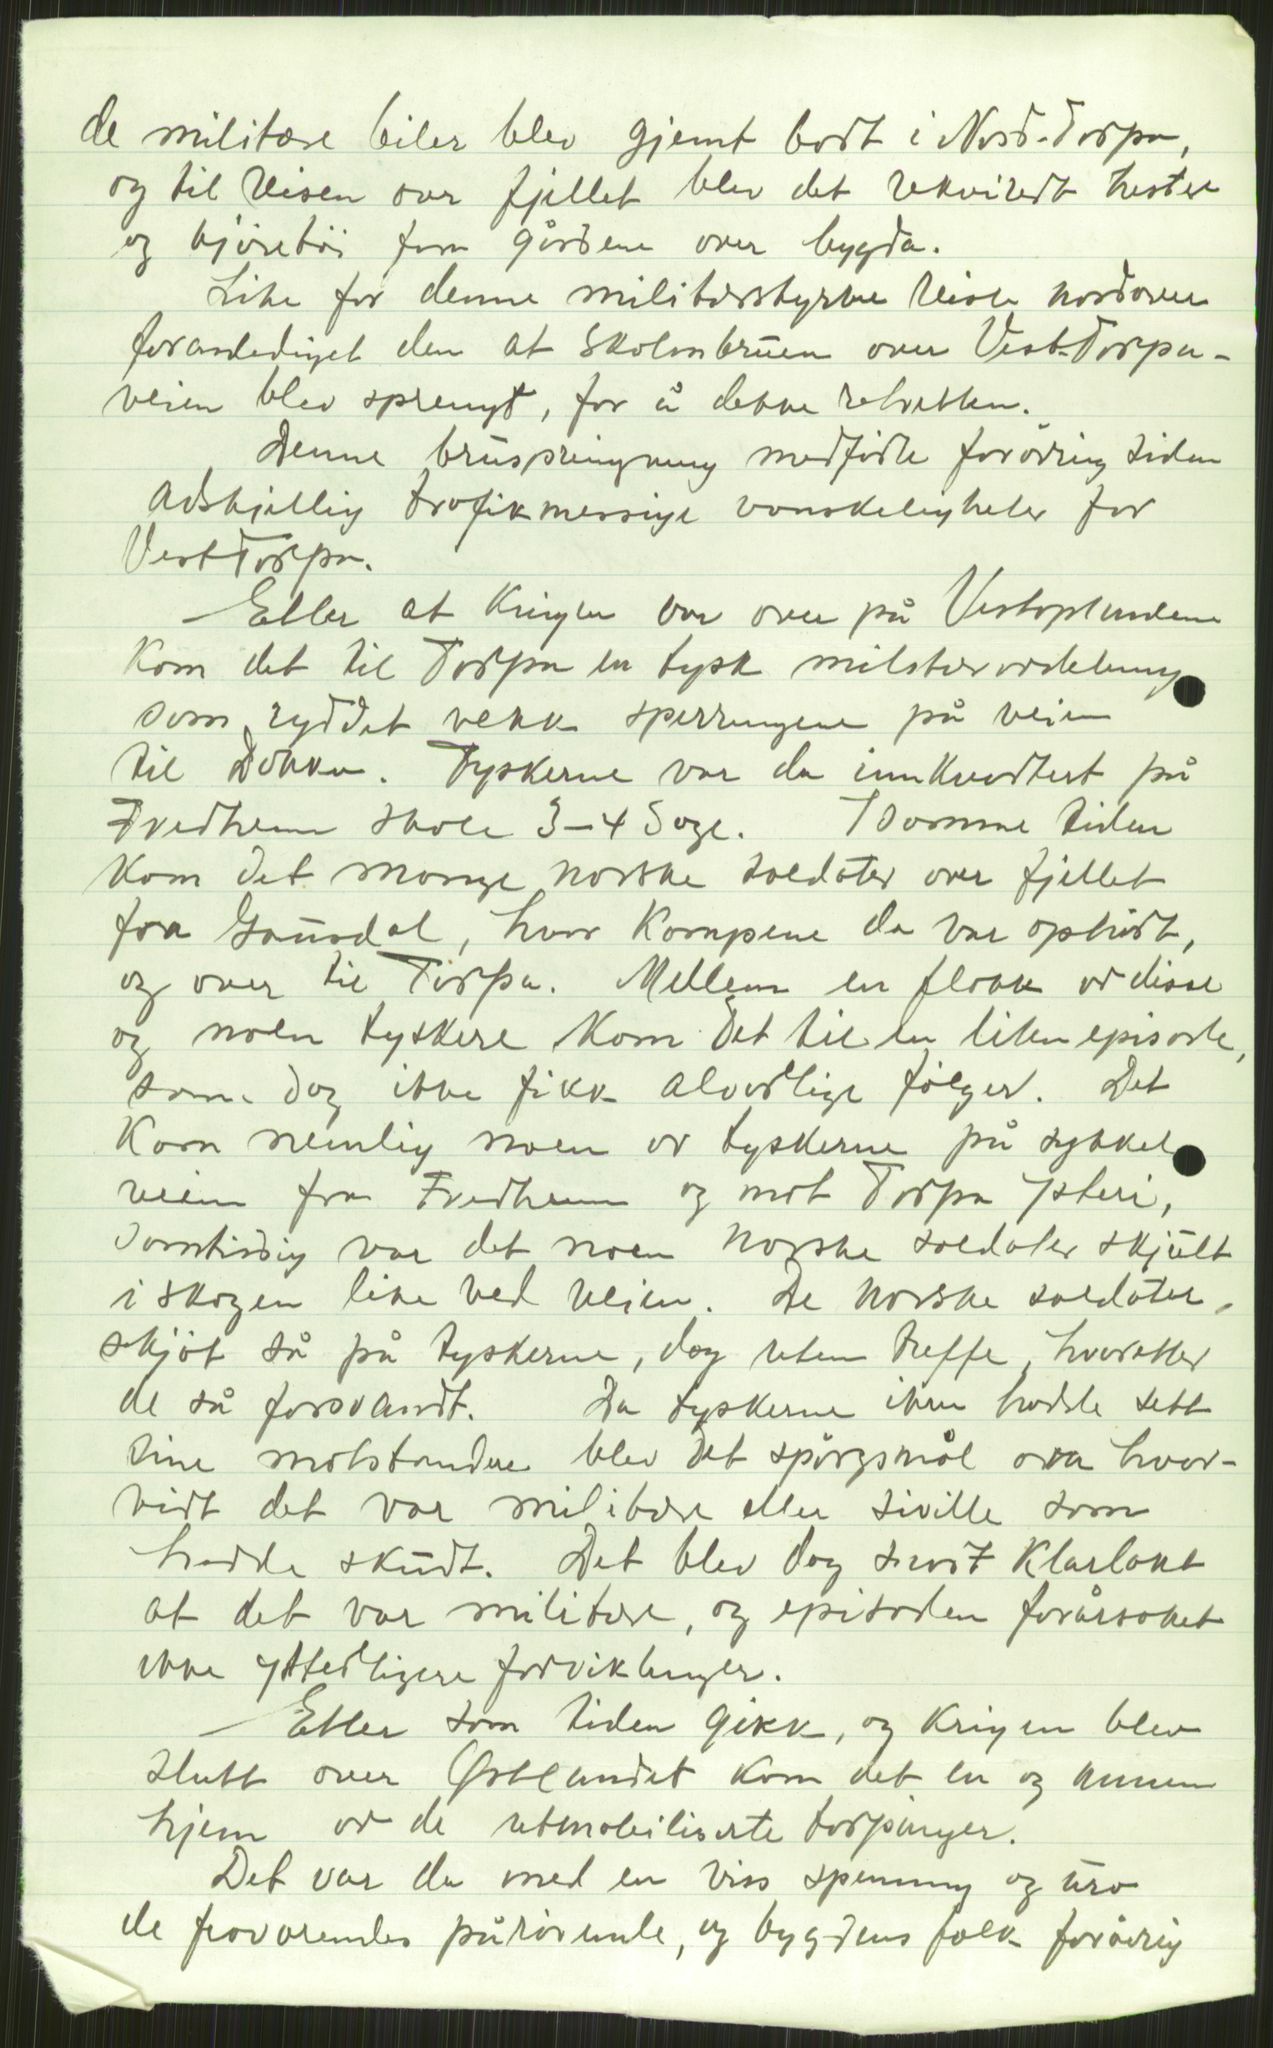 de militære biler blev gjemt bort i Nord-Torpa,
og til reisen over fjellet blev det rekvirert hester
og kjöretöi fra gårdene over bygda.
Like for denne militærstyrke reiste nordover
foranlediget den at Skolmbruen over Vest-Torpa-
veien blev sprengt, for å dekke retretten.
Denne brusprengning medförte forövrig siden
adskjellig trafikmessige vanskeligheter for
Vest Torpa.
Etter at krigen var over på Vestoplandene
kom det til Torpa en tysk militæravdelning
som ryddet vekk sperringene på veien
til Dokka. Tyskerne var da innkvartert på
Fredheim skole 3-4 dage. I samme tiden
kom det mange norske soldater over fjellet
fra Gausdal, hvor kampene da var ophört,
og over til Torpa. Mellem en flokk av disse
og noen tyskere kom det til en liten episode,
som dog ikke fikk alvorlige fölger. Det
kom nemlig noen av tyskerne på sykkel
veien fra Fredheim og mot Torpa Ysteri,
samtidig var det noen norske soldater skjult
i skogen like ved veien. De norske soldater
skjöt så på tyskerne, dog uten treffe, hvoretter
de så forsvandt. Da tyskerne ikke hadde sett
sine motstandere blev det spörgsmål om hvor-
vidt det var militære eller siville som
hadde skudt. Det blev dog snart klarlakt
at det var militære, og episoden forårsaket
ikke ytterligere forviklinger.
Etter som tiden gikk, og krigen blev
slutt over Østlandet kom det en og annen
hjem av de utmobiliserte torpinger.
Det var da med en viss spenning og uro
de fraværendes pårörende, og bygdens folk forövrig